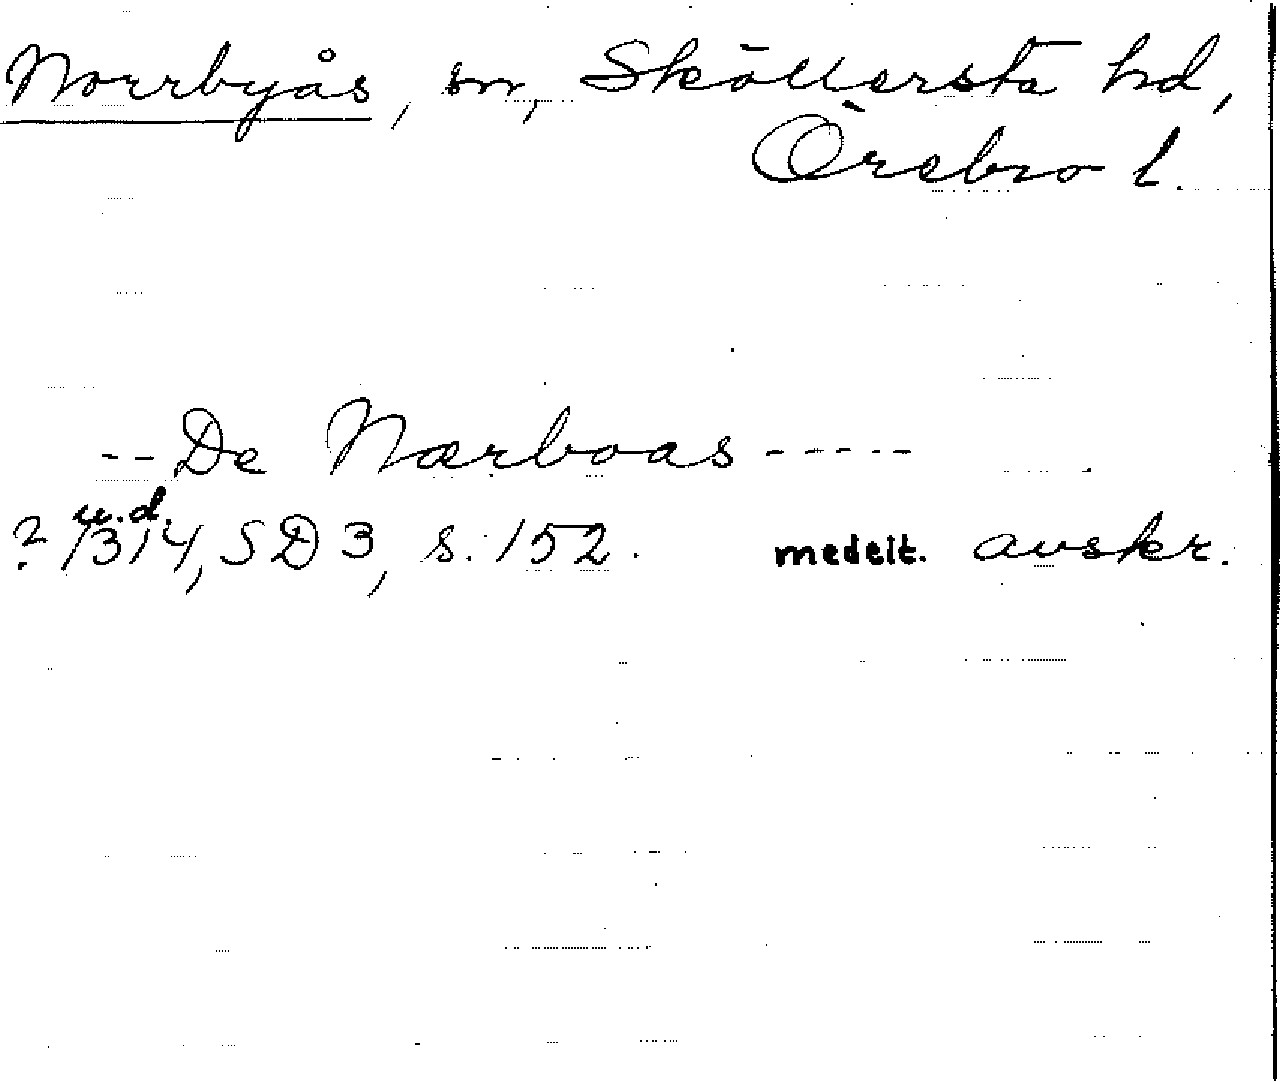 Norrbyås, sn, Sköllersta hd,
Örebro l.
-- De Nærboas -----
u.d.
? 1314, SD 3, s. 152. medelt. avskr.